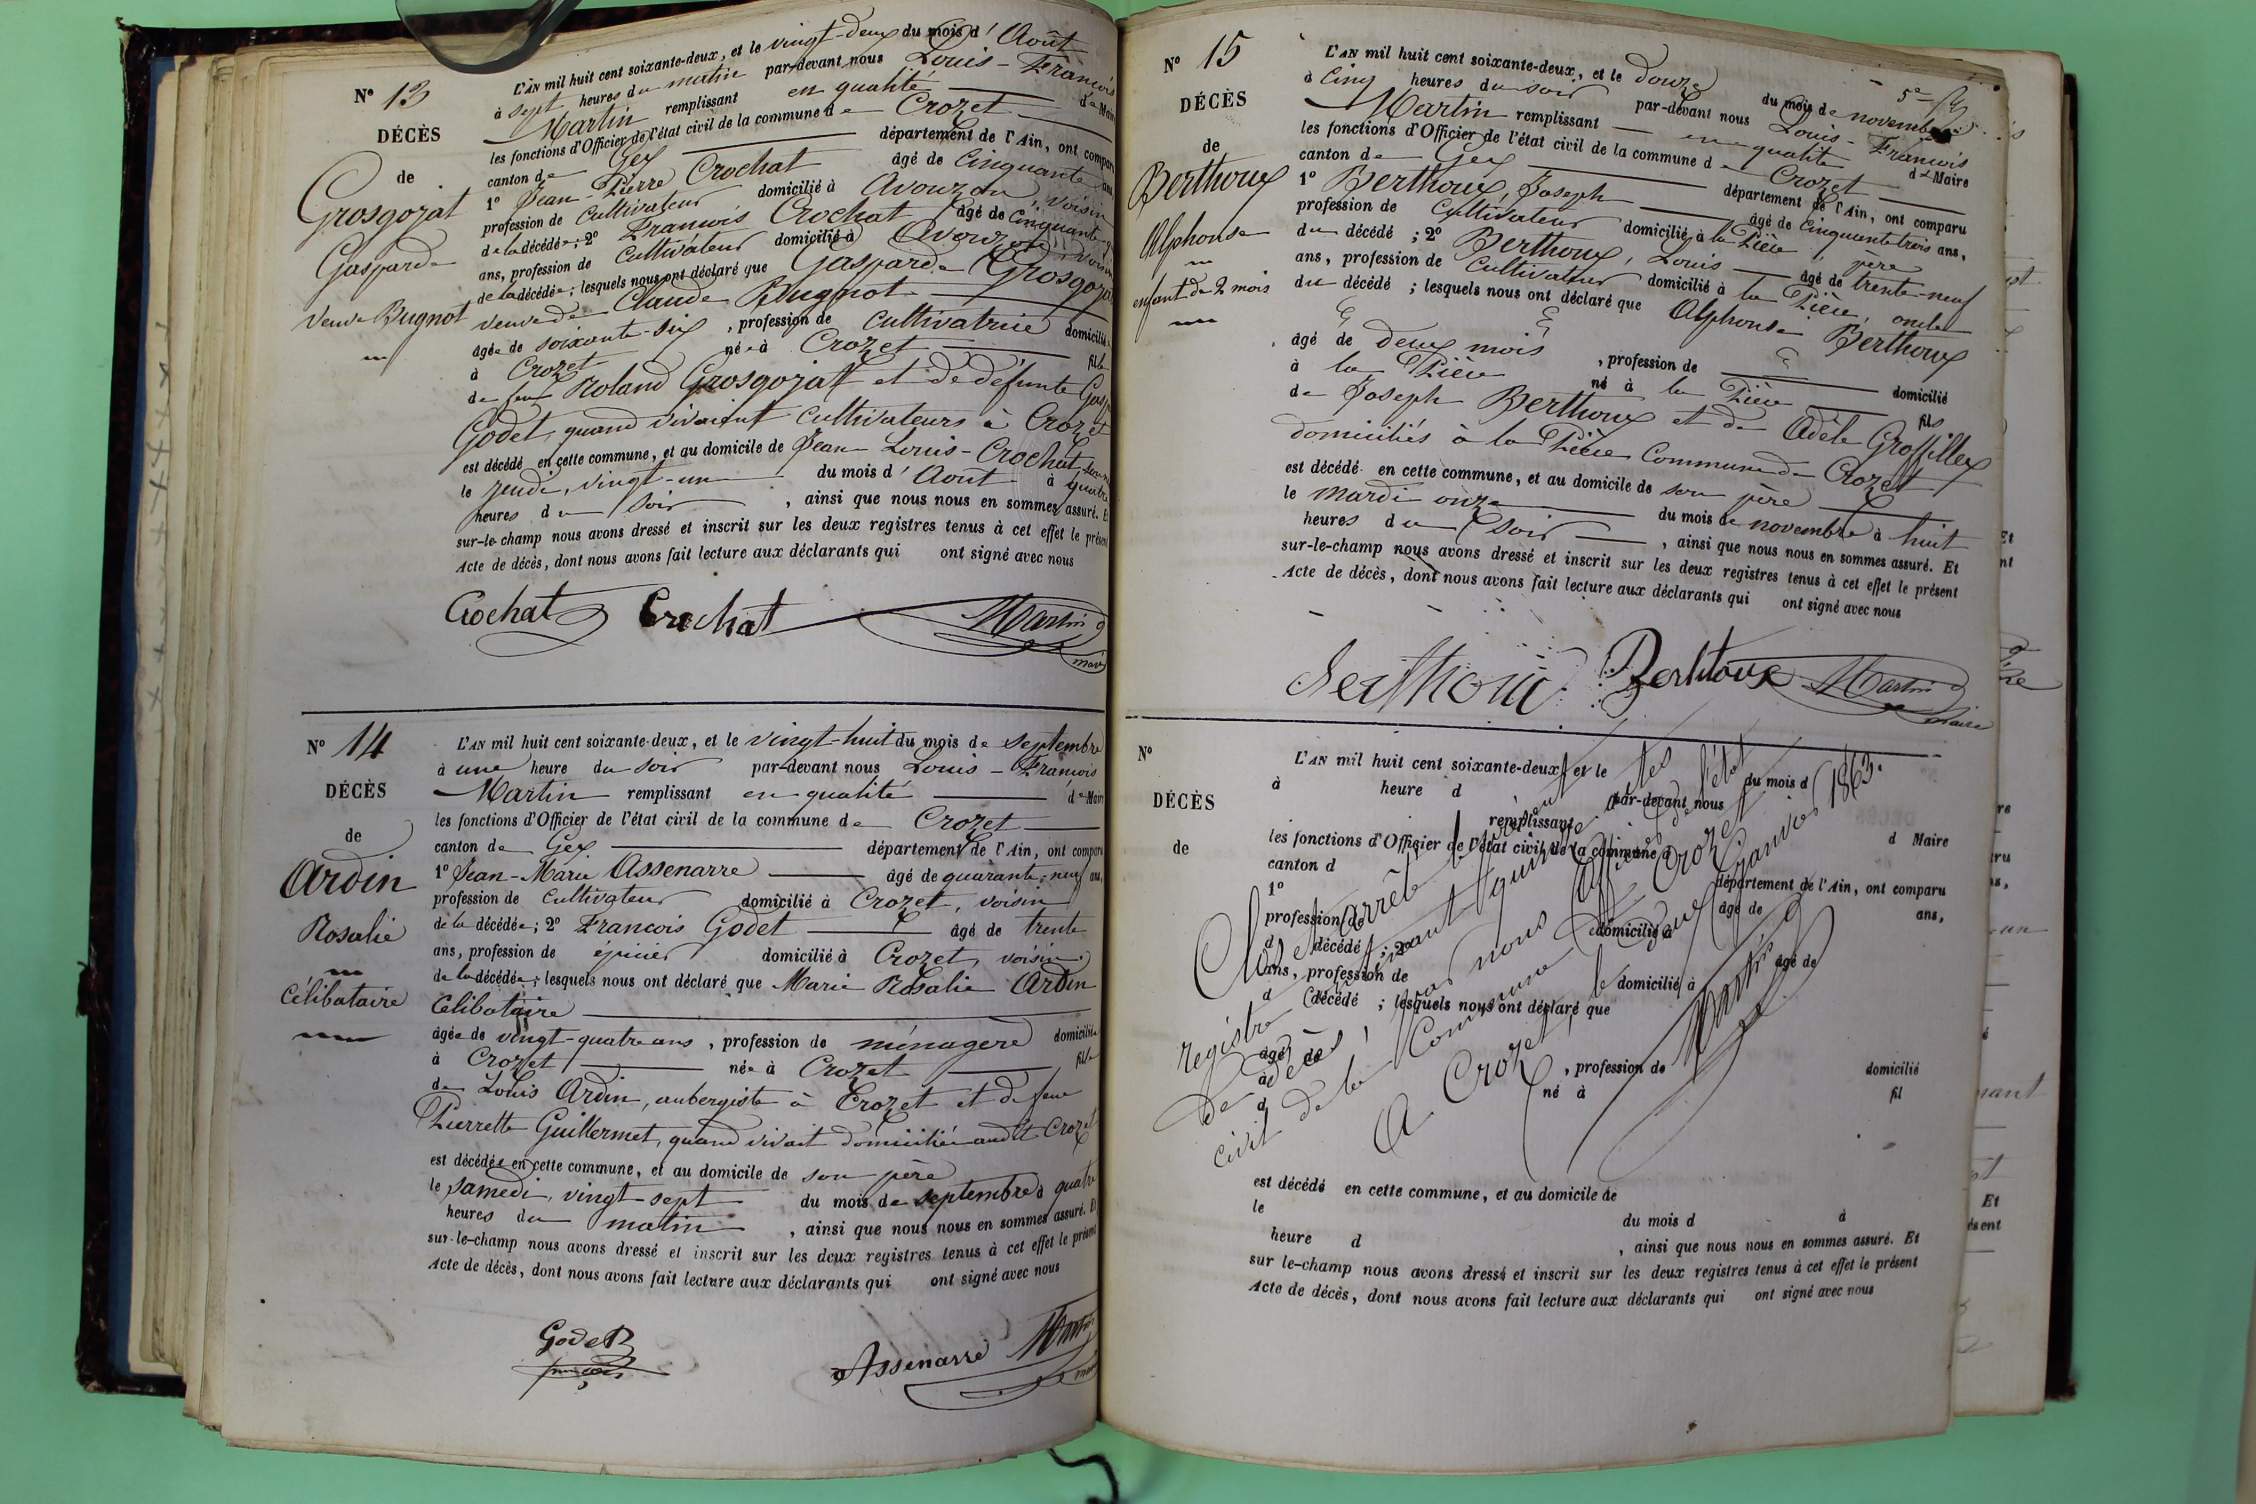 N° 13
DÉCÈS
de
Grosgozat
Gasparde
Veuve Bugnot
L'AN mil huit cent soixante-deux, et le vingt-deux du mois d'Août
à sept heures du matin par-devant nous Louis-François
Martin remplissant en qualité de Maire
les fonctions d'Officier de l'état civil de la commune de Crozet
canton de Gex département de l'Ain, ont comparu
1° Jean-Pierre Crochat âgé de cinquante ans,
profession de cultivateur domicilié à Avouzon, voisin
de la décédée; 2° François Crochat âgé de cinquante
ans, profession de cultivateur domicilié à Avouzon voisin
de la décédée; lesquels nous ont déclaré que Gasparde Grosgozat
veuve de Claude Bugnot
âgée de soixante-six, profession de cultivatrice domiciliée
à Crozet née à Crozet fille
de feu Roland Grosgozat et de défunte
Godet, quand vivaient cultivateurs à Crozet
est décédé en cette commune, et au domicile de Jean Louis-Crochat
le jeudi, vingt-un du mois d'Août à quatre
heures du soir, ainsi que nous nous en sommes assuré. Et
sur-le-champ nous avons dressé et inscrit sur les deux registres tenus à cet effet le présent
Acte de décès, dont nous avons fait lecture aux déclarants qui ont signé avec nous
Crochat Crochat Martin
maire
N° 14
DÉCÈS
de
Ardin
Rosalie
Célibataire
L'AN mil huit cent soixante-deux, et le vingt-huit du mois de septembre
à une heure du soir par-devant nous Louis-François
Martin remplissant en qualité de Maire
les fonctions d'Officier de l'état civil de la commune de Crozet
canton de Gex département de l'Ain, ont comparu
1° Jean-Marie Assenarre âgé de quarante-neuf ans,
profession de cultivateur domicilié à Crozet, voisin
de la décédée; 2° François Godet âgé de trente
ans, profession de épicier domicilié à Crozet, voisin
de la décédée; lesquels nous ont déclaré que Marie Rosalie Ardin
Célibataire
âgée de vingt-quatre ans, profession de ménagère domiciliée
à Crozet née à Crozet fille
de Louis Ardin, aubergiste à Crozet et de feue
Pierrette Guillermet, quand vivait domiciliée audit Crozet
est décédée en cette commune, et au domicile de son père
le samedi, vingt-sept du mois de septembre à quatre
heures du matin, ainsi que nous nous en sommes assuré. Et
sur-le-champ nous avons dressé et inscrit sur les deux registres tenus à cet effet le présent
Acte de décès, dont nous avons fait lecture aux déclarants qui ont signé avec nous
Godet
Assenarre Martin
maire
N° 15
DÉCÈS
de
Berthoux
Alphonse
enfant de 2 mois
L'AN mil huit cent soixante-deux, et le douze du mois de novembre
à cinq heures du soir par-devant nous Louis-François
Martin remplissant en qualité de Maire
les fonctions d'Officier de l'état civil de la commune de Crozet
canton de Gex département de l'Ain, ont comparu
1° Berthoux, Joseph âgé de cinquante trois ans,
profession de cultivateur domicilié à la Pièce, père
du décédé; 2° Berthoux, Louis âgé de trente-neuf
ans, profession de cultivateur domicilié à la Pièce, oncle
du décédé; lesquels nous ont déclaré que Alphonse Berthoux
âgé de deux mois, profession de domicilié
à la Pièce né à la Pièce fils
de Joseph Berthoux et de Adèle Groffillex
domiciliés à la Pièce Commune de Crozet
est décédé en cette commune, et au domicile de son père
le mardi onze du mois de novembre à huit
heures du soir, ainsi que nous nous en sommes assuré. Et
sur-le-champ nous avons dressé et inscrit sur les deux registres tenus à cet effet le présent
Acte de décès, dont nous avons fait lecture aux déclarants qui ont signé avec nous
Berthoux Berthoux Martin
maire
N°
DÉCÈS
de
L'AN mil huit cent soixante-deux, et le du mois d
à heure d par-devant nous
remplissant d Maire
les fonctions d'Officier de l'état civil de la commune d
canton d département de l'Ain, ont comparu
1° âgé de ans,
profession de domicilié à
d décédé ; 2° âgé de
ans, profession de domicilié à
d décédé ; lesquels nous ont déclaré que
âgé de , profession de domicilié
à né à fil
d
est décédé en cette commune, et au domicile de
le du mois d à
heure d , ainsi que nous nous en sommes assuré. Et
sur le-champ nous avons dressé et inscrit sur les deux registres tenus à cet effet le présent
Acte de décès, dont nous avons fait lecture aux déclarants qui ont signé avec nous
Clos et arrêté le présent
registre contenant quinze actes
de décès, par nous Officier de l'état
civil de la Commune de Crozet
A Crozet, le deux Janvier 1863.
Martin